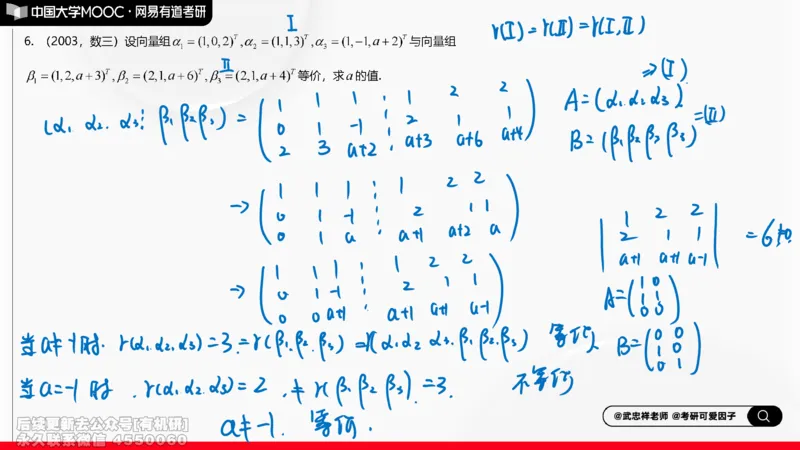 中国大学MOOC · 网易有道考研
I
6. （2003，数三）设向量组α₁ = (1,0,2)ᵀ, α₂ = (1,1,3)ᵀ, α₃ = (1,−1,a+2)ᵀ与向量组
II
β₁ = (1,2,a+3)ᵀ, β₂ = (2,1,a+6)ᵀ, β₃ = (2,1,a+4)ᵀ等价，求a的值.
r(I) = r(II) = r(I,II)
⇒(I)
A = (α₁ α₂ α₃)
=(II)
(α₁ α₂ α₃ ⋮ β₁ β₂ β₃) = ( 1 1 1 ⋮ 1 2 2
0 1 -1 ⋮ 2 1 1
2 3 a+2 ⋮ a+3 a+6 a+4 )
→ ( 1 1 1 ⋮ 1 2 2
0 1 -1 ⋮ 2 1 1
0 1 a ⋮ a+1 a+2 a )
| 1 2 2
2 1 1
a+1 a+1 a-1 | = 6
→ ( 1 1 1 ⋮ 1 2 2
0 1 -1 ⋮ 2 1 1
0 0 a+1 ⋮ a+1 a+1 a-1 )
A = ( 1 0
1 1
0 0 )
B = ( 0 0
1 0
0 1 )
当a≠-1时. r(α₁.α₂.α₃) = 3 = r(β₁.β₂.β₃) = r(α₁ α₂ α₃.β₁ β₂.β₃) 等价.
当a=-1时. r(α₁.α₂.α₃) = 2 ≠ r(β₁ β₂ β₃) = 3. 不等价
a≠-1. 等价.
后续更新去公众号[有机研]
永久联系微信 4550060
@武忠祥老师 @考研可爱因子